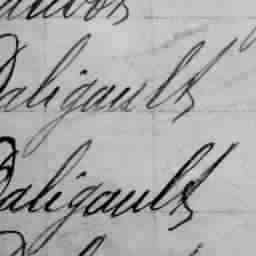 Daligault
Daligault